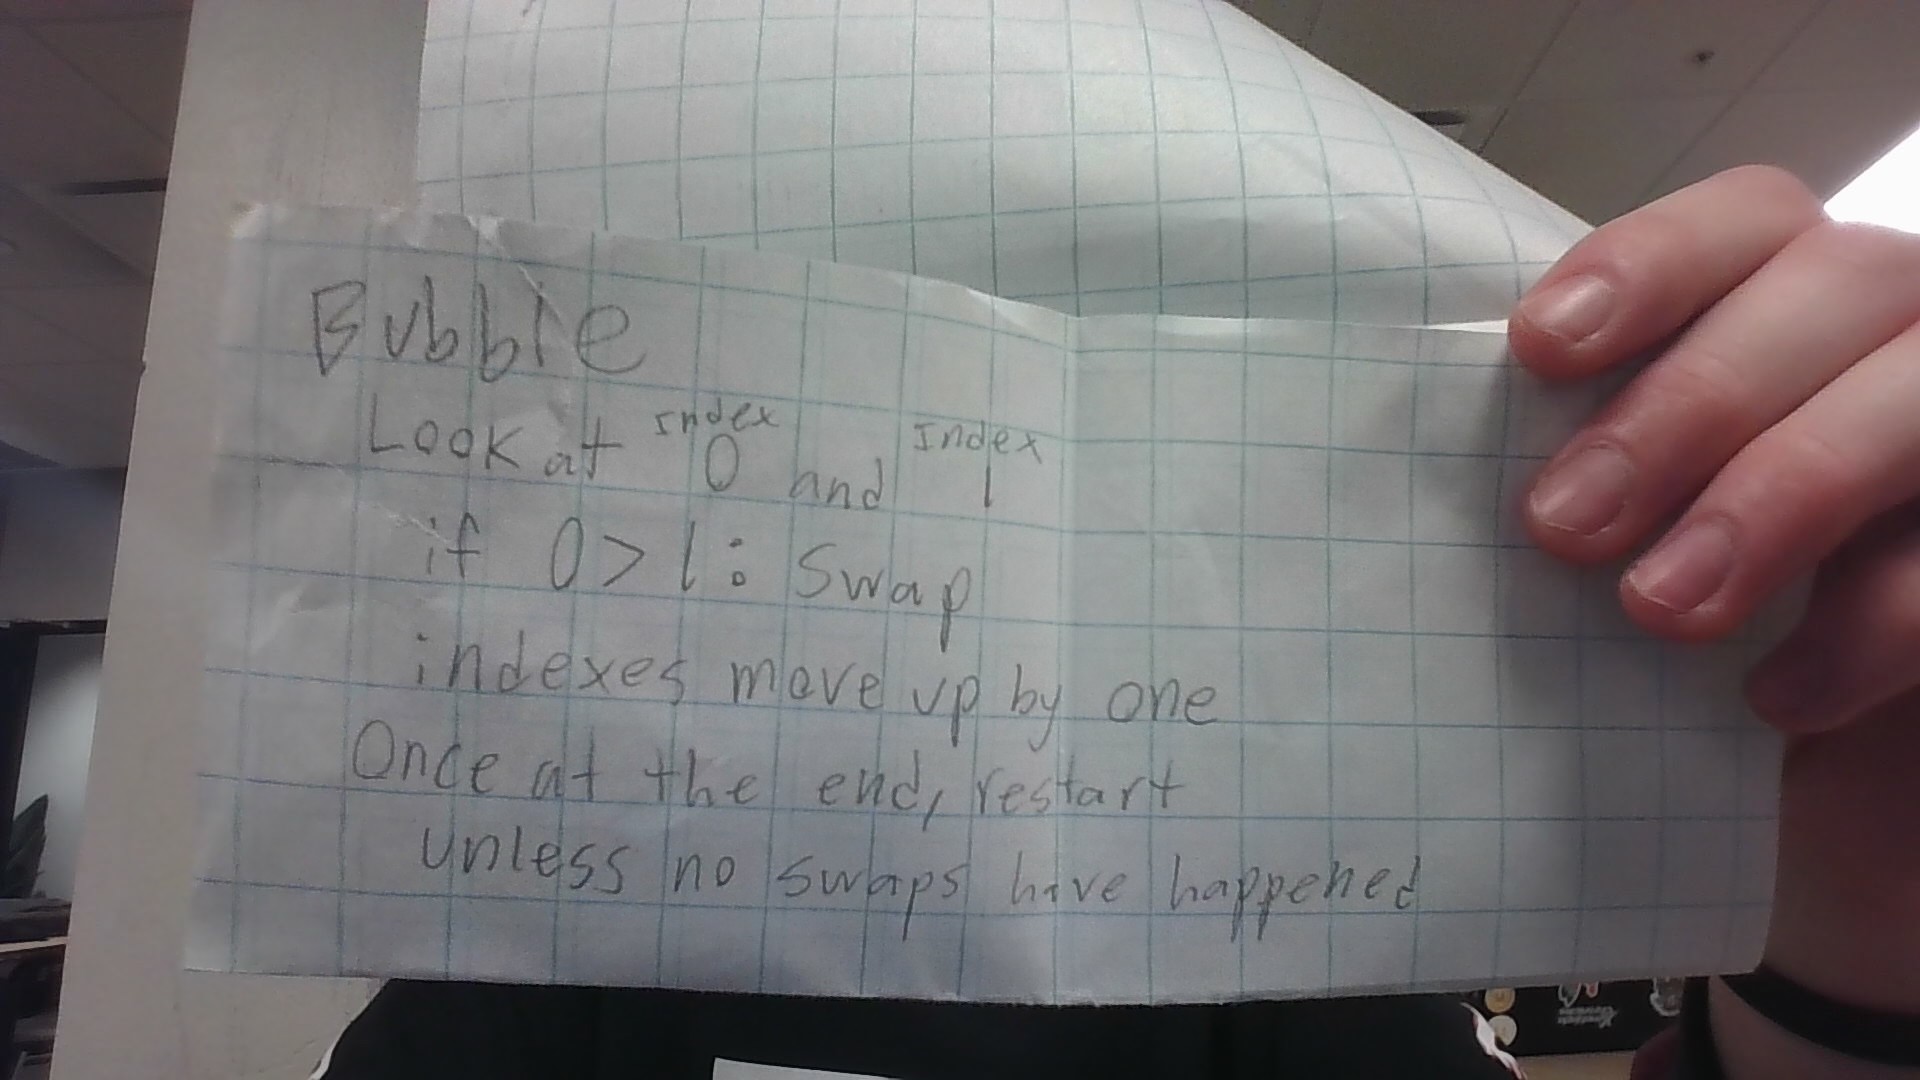 Bubble
Look at Index 0 and Index 1
if 0 > 1 : Swap
indexes move up by one
Once at the end, restart
unless no swaps have happened